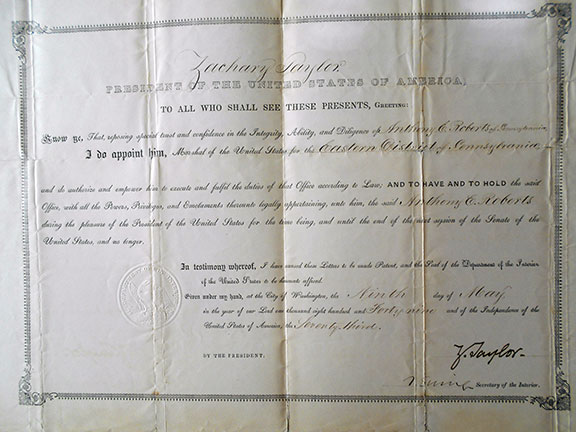 Zachary Taylor
PRESIDENT OF THE UNITED STATES OF AMERICA,
TO ALL WHO SHALL SEE THESE PRESENTS, GREETING:
Know ye, That, reposing special trust and confidence in the Integrity, Ability, and Diligence of Anthony E. Roberts of Pennsylvania
I do appoint him, Marshal of the United States for the Eastern District of Pennsylvania
and do authorize and empower him to execute and fulfil the duties of that Office according to Law; AND TO HAVE AND TO HOLD the said
Office, with all the Powers, Privileges, and Emoluments thereunto legally appertaining, unto him, the said Anthony E. Roberts
during the pleasure of the President of the United States for the time being, and until the end of the next session of the Senate of the
United States, and no longer.
In testimony whereof, I have caused these Letters to be made Patent, and the Seal of the Department of the Interior
of the United States to be hereunto affixed.
Given under my hand, at the City of Washington, the Ninth day of May
in the year of our Lord one thousand eight hundred and Forty nine and of the Independence of the
United States of America, the Seventy third.
BY THE PRESIDENT: Z. Taylor
Ewing Secretary of the Interior.